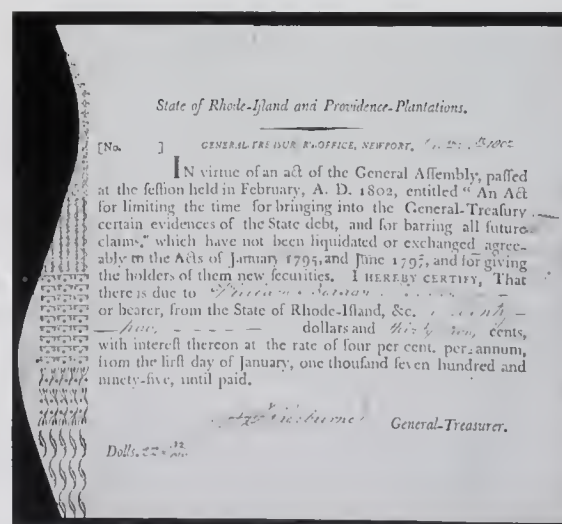 State of Rhode-Iſland and Providence-Plantations.
[No. ] GENERAL-TREASURER'S OFFICE, NEWPORT, 1802
IN virtue of an act of the General Aſſembly, paſſed
at the ſeſſion held in February, A. D. 1802, entitled “ An Act
for limiting the time for bringing into the General-Treaſury
certain evidences of the State debt, and for barring all future
claims,” which have not been liquidated or exchanged agree-
ably to the Acts of January 1795, and June 1795, and for giving
the holders of them new ſecurities. I HEREBY CERTIFY, That
there is due to William
or bearer, from the State of Rhode-Iſland, &c. twenty —
— two, - - - - — dollars and thirty two, cents,
with intereſt thereon at the rate of four per cent. per annum,
from the firſt day of January, one thouſand ſeven hundred and
ninety-five, until paid.
General-Treaſurer.
Dolls. 22 32/100